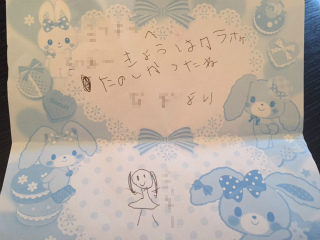 へ
きょうはカラオケ
たのしかったね
より